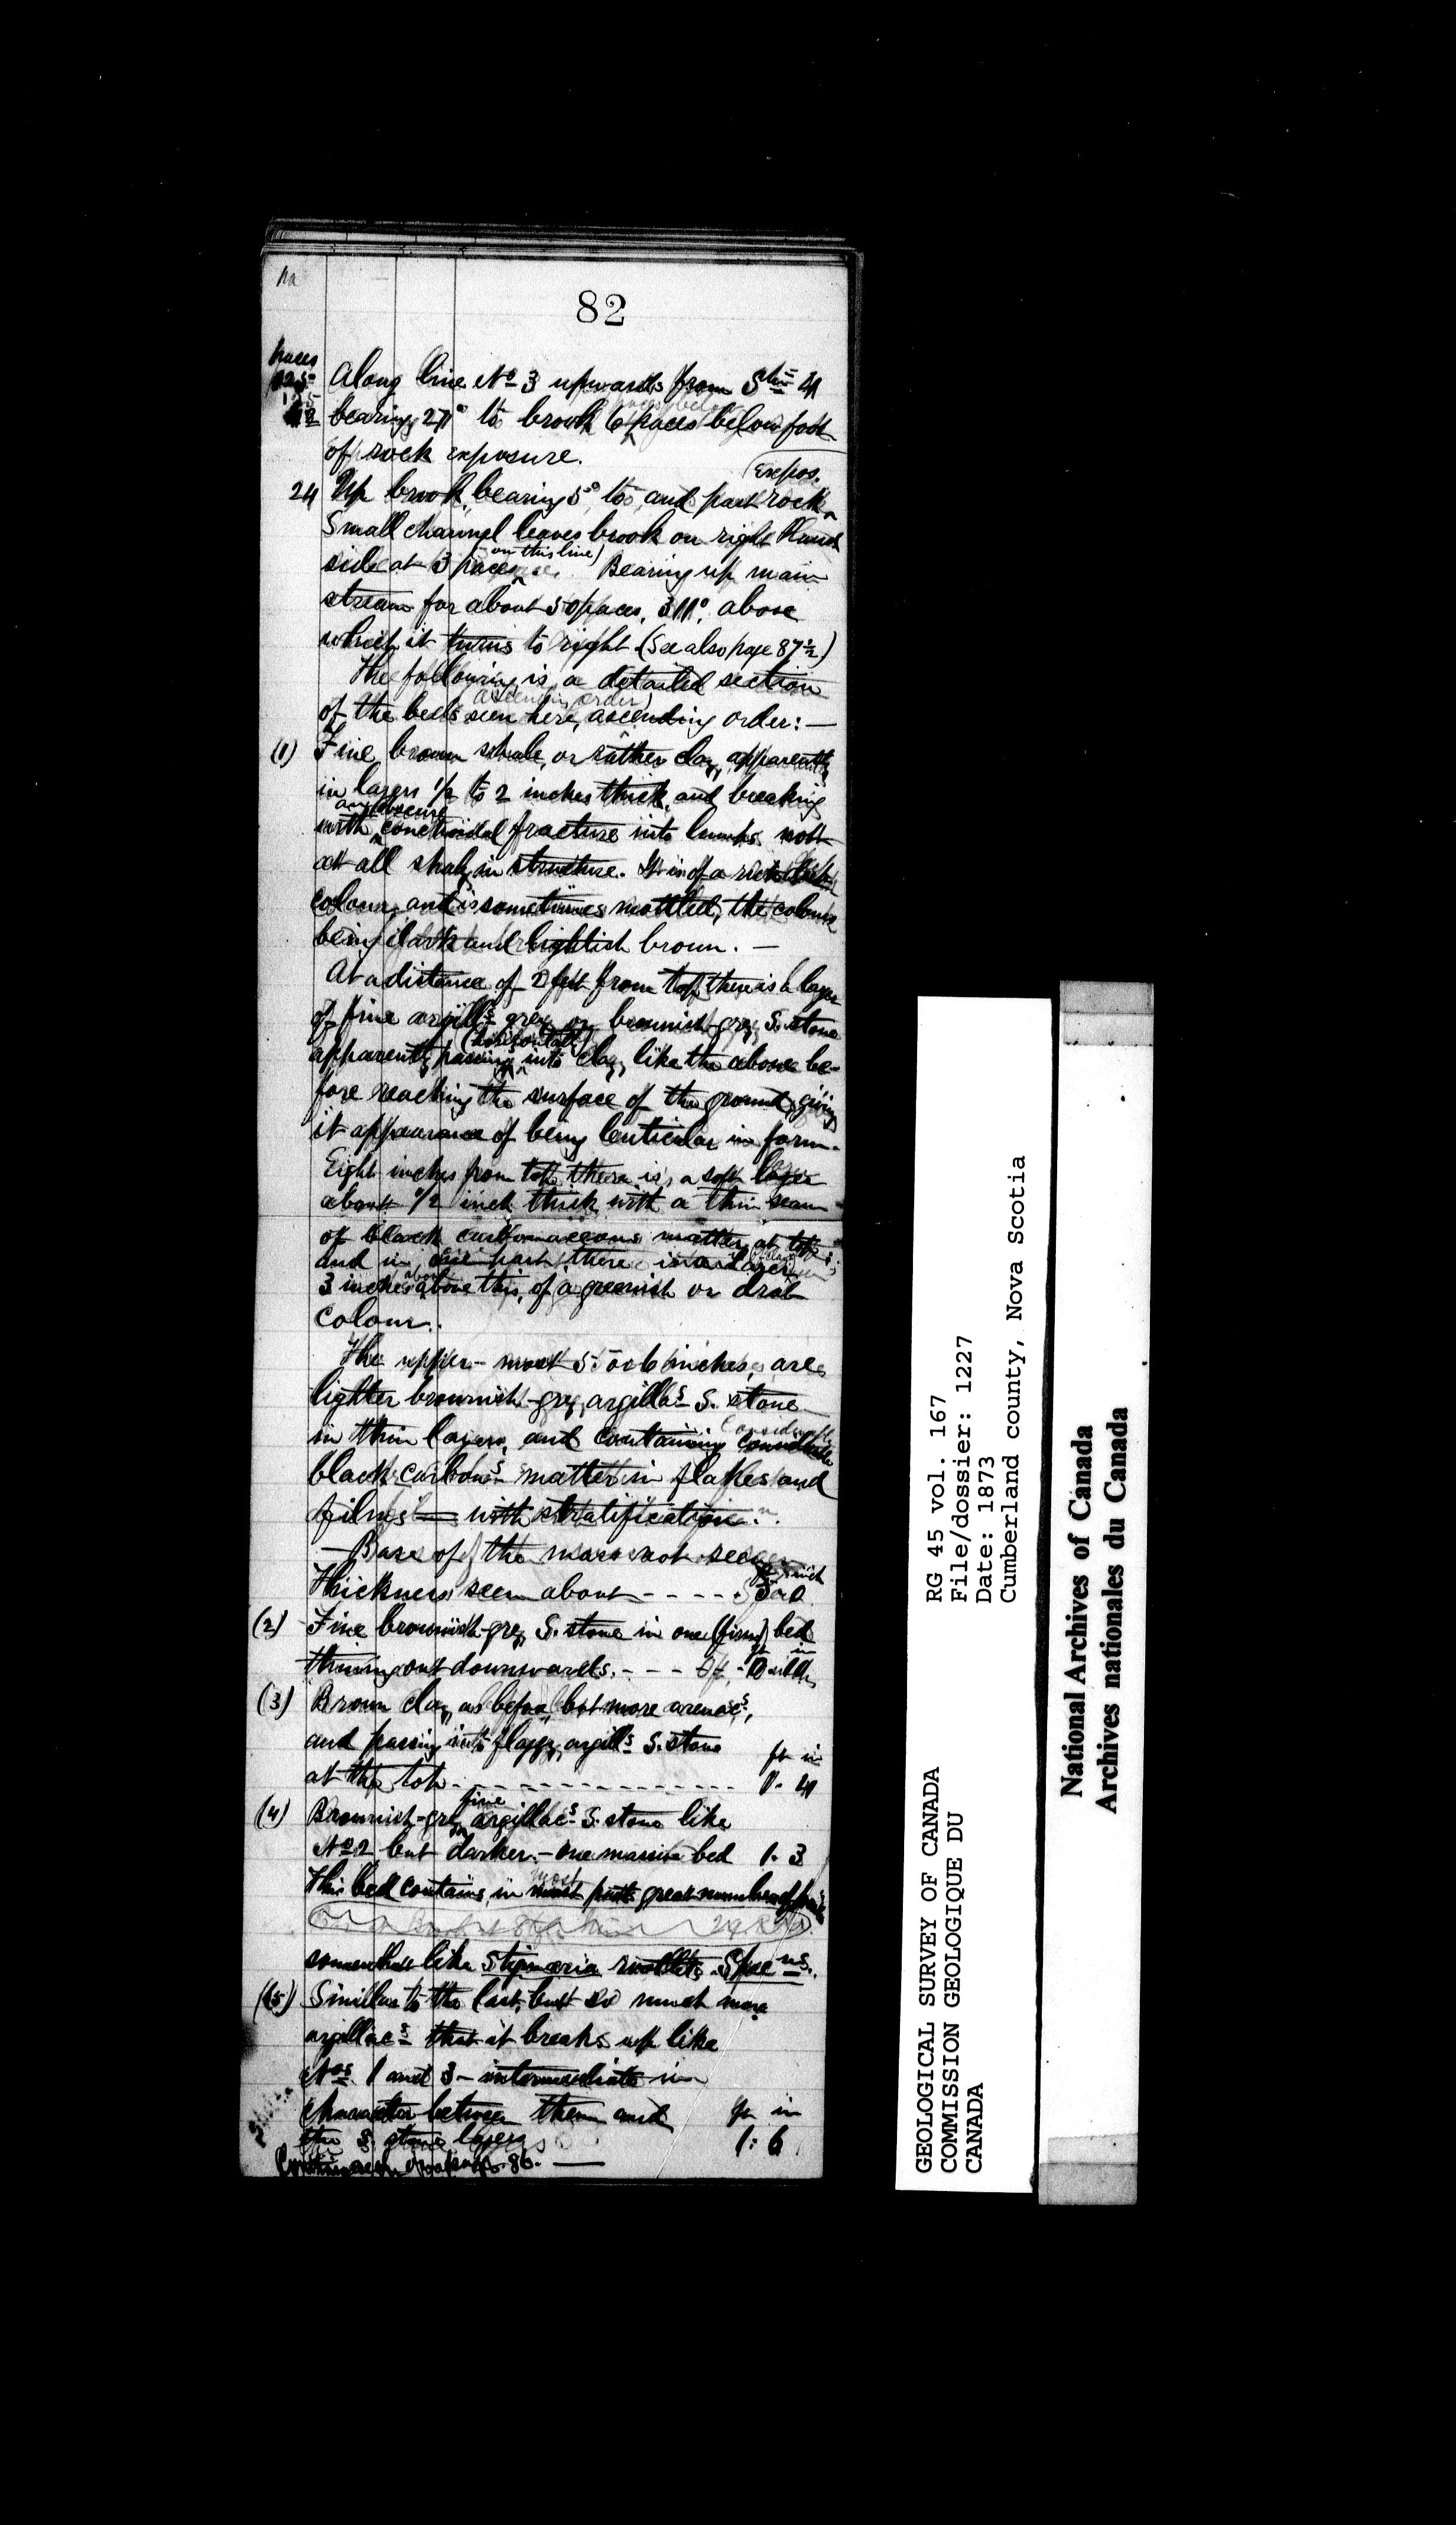 82
paces
125
Along line No 3 upwards from Stn 4
bearing 271° to brook 6 paces below foot
of rock exposure.
24 Up brook, bearing 5°, to, and past rock expos.
Small channel leaves brook on right hand
side at 3 paces (on this line). Bearing up main
stream for about 50 paces, 311°, above
which it turns to right (See also page 87½)
The following is a detailed section
of the beds seen here, ascending order:—
(1) Fine brown shale, or rather clay, apparently
in layers ½ to 2 inches thick, and breaking
with an obscure conchoidal fracture into lumps not
at all shaly in structure. It is of a rich dark
colour, and is sometimes mottled, the colours
being dark and lightish brown. —
At a distance of 2 feet from top there is a layer
of fine argills grey or brownish-grey S. stone
apparently passing (horizontally) into clay, like the above be-
fore reaching the surface of the ground, giving
it appearance of being lenticular in form.
Eight inches from top there is a soft layer
about ½ inch thick with a thin seam
of black carbonaceous matter at top;
and in one part there is a layer
3 inches above this, of a greenish or drab
colour.
The upper-most 5 or 6 inches, are
lighter brownish-grey, argillas S. stone
in thin layers, and containing considerable
black carbons matter in flakes and
films = with stratification.
— Base of the mass not seen
Thickness seen about - - - - 5 . 0
(2) Fine brownish-grey S. stone in one (firm) bed
thinning out downwards. - - -
(3) Brown clay, as before, but more arenacs,
and passing into flaggy, argills S. stone
ft in
at the top. - - - - - - - - - - 1. 4
(4) Brownish-grey fine argillacs S. stone like
No 2 but darker. — one massive bed 1. 3
This bed contains, in most parts great number of
somewhat like Stigmaria rootlets. Specns.
(5) Similar to the last, but so much more
argillacs that it breaks up like
Nos. 1 and 3 — intermediate in
character between them and ft in
the S. stone layers 1: 6
Continued on page 86. —
GEOLOGICAL SURVEY OF CANADA
COMMISSION GEOLOGIQUE DU
CANADA
RG 45 vol. 167
File/dossier: 1227
Date: 1873
Cumberland county, Nova Scotia
National Archives of Canada
Archives nationales du Canada